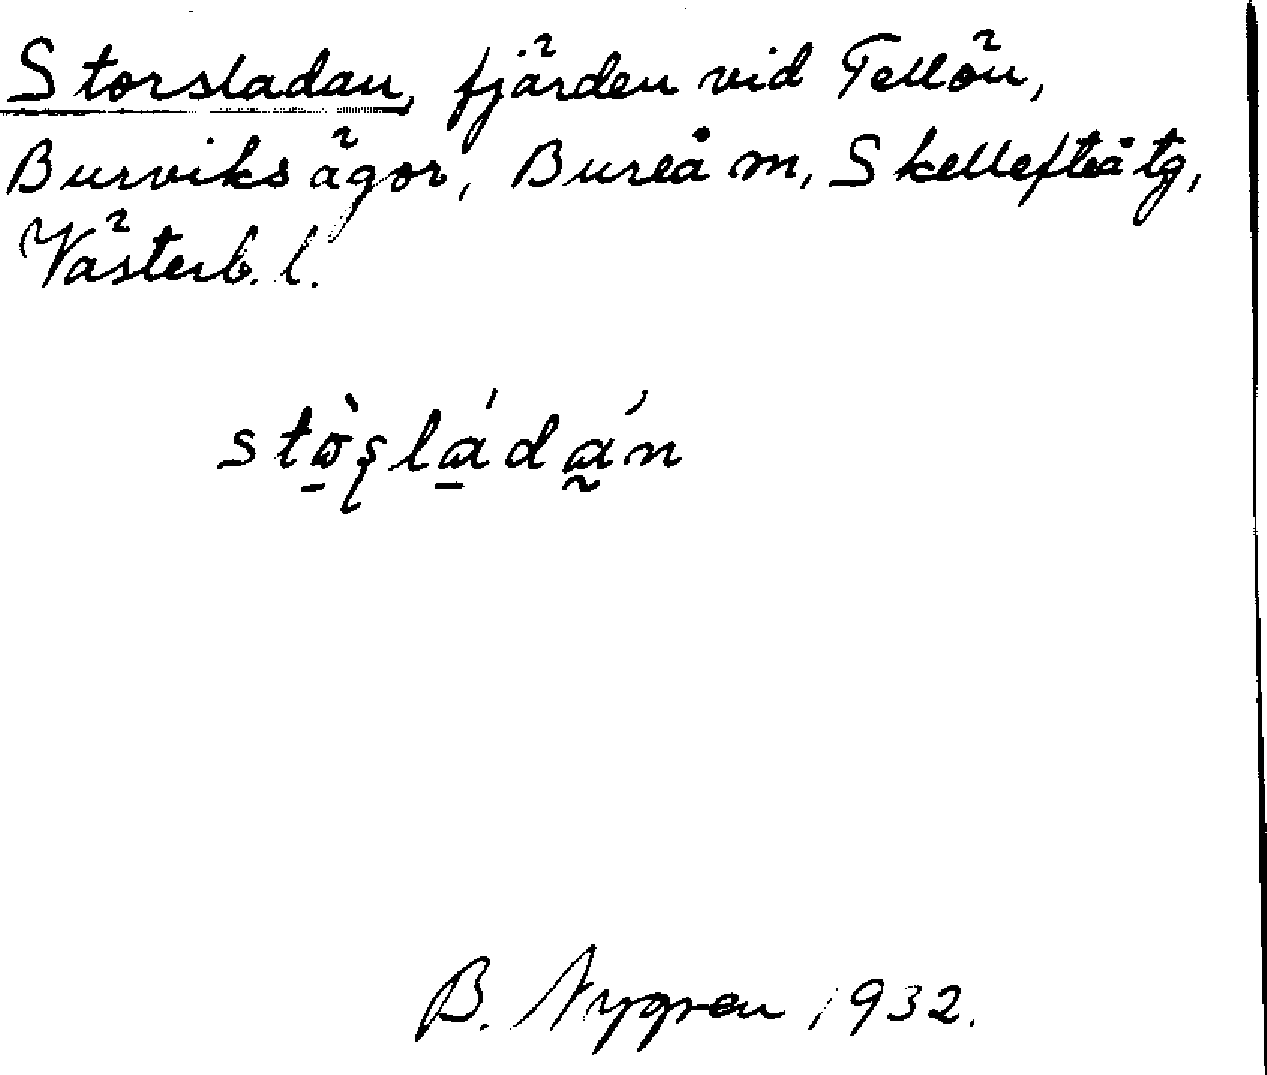 Storsladan, fjärden vid Tellön,
Burviks ägor, Bureå m, Skellefteå tg,
Västerb. l.
stò̱ʂlá̱dá̰n
B. Nygren 1932.